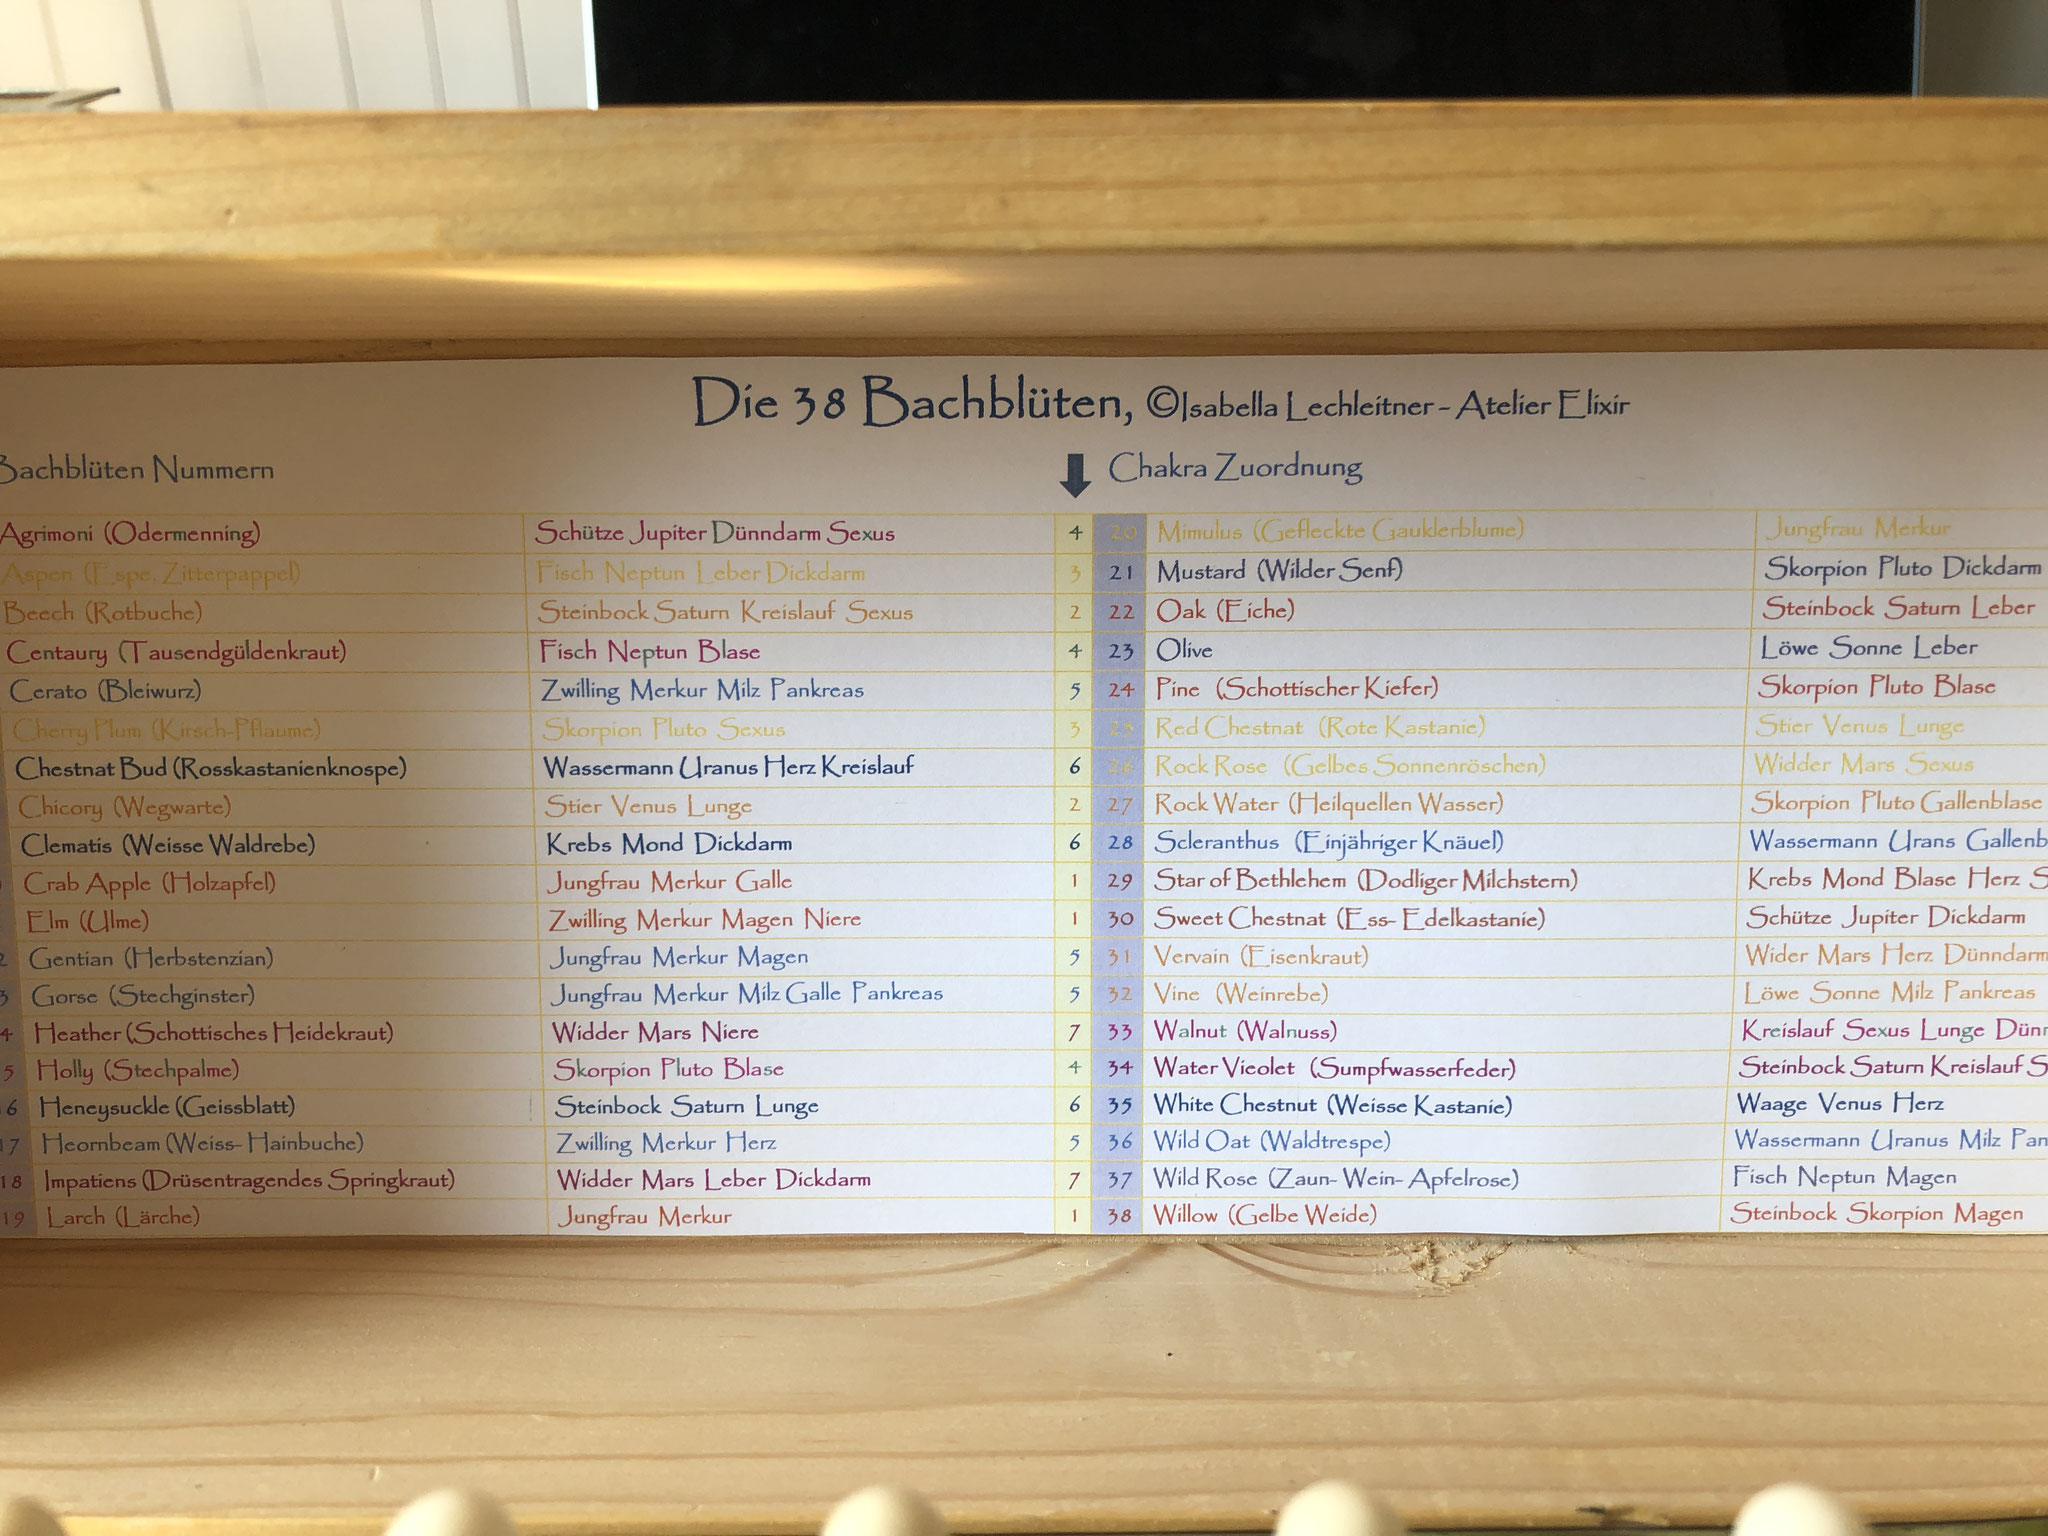 Die 38 Bachblüten, ©Isabella Lechleitner - Atelier Elixir
Bachblüten Nummern
Chakra Zuordnung
Agrimoni (Odermenning) Schütze Jupiter Dünndarm Sexus 4 20 Mimulus (Gefleckte Gauklerblume) Jungfrau Merkur
Aspen (Espe, Zitterpappel) Fisch Neptun Leber Dickdarm 3 21 Mustard (Wilder Senf) Skorpion Pluto Dickdarm
Beech (Rotbuche) Steinbock Saturn Kreislauf Sexus 2 22 Oak (Eiche) Steinbock Saturn Leber
Centaury (Tausendgüldenkraut) Fisch Neptun Blase 4 23 Olive Löwe Sonne Leber
Cerato (Bleiwurz) Zwilling Merkur Milz Pankreas 5 24 Pine (Schottischer Kiefer) Skorpion Pluto Blase
Cherry Plum (Kirsch-Pflaume) Skorpion Pluto Sexus 3 25 Red Chestnat (Rote Kastanie) Stier Venus Lunge
Chestnat Bud (Rosskastanienknospe) Wassermann Uranus Herz Kreislauf 6 26 Rock Rose (Gelbes Sonnenröschen) Widder Mars Sexus
Chicory (Wegwarte) Stier Venus Lunge 2 27 Rock Water (Heilquellen Wasser) Skorpion Pluto Gallenblase
Clematis (Weisse Waldrebe) Krebs Mond Dickdarm 6 28 Scleranthus (Einjähriger Knäuel) Wassermann Urans Gallenb
Crab Apple (Holzapfel) Jungfrau Merkur Galle 1 29 Star of Bethlehem (Dodliger Milchstern) Krebs Mond Blase Herz S
Elm (Ulme) Zwilling Merkur Magen Niere 1 30 Sweet Chestnat (Ess- Edelkastanie) Schütze Jupiter Dickdarm
2 Gentian (Herbstenzian) Jungfrau Merkur Magen 5 31 Vervain (Eisenkraut) Wider Mars Herz Dünndarm
3 Gorse (Stechginster) Jungfrau Merkur Milz Galle Pankreas 5 32 Vine (Weinrebe) Löwe Sonne Milz Pankreas
4 Heather (Schottisches Heidekraut) Widder Mars Niere 7 33 Walnut (Walnuss) Kreislauf Sexus Lunge Dünn
5 Holly (Stechpalme) Skorpion Pluto Blase 4 34 Water Vieolet (Sumpfwasserfeder) Steinbock Saturn Kreislauf S
6 Heneysuckle (Geissblatt) Steinbock Saturn Lunge 6 35 White Chestnut (Weisse Kastanie) Waage Venus Herz
17 Heornbeam (Weiss- Hainbuche) Zwilling Merkur Herz 5 36 Wild Oat (Waldtrespe) Wassermann Uranus Milz Pan
18 Impatiens (Drüsentragendes Springkraut) Widder Mars Leber Dickdarm 7 37 Wild Rose (Zaun- Wein- Apfelrose) Fisch Neptun Magen
19 Larch (Lärche) Jungfrau Merkur 1 38 Willow (Gelbe Weide) Steinbock Skorpion Magen